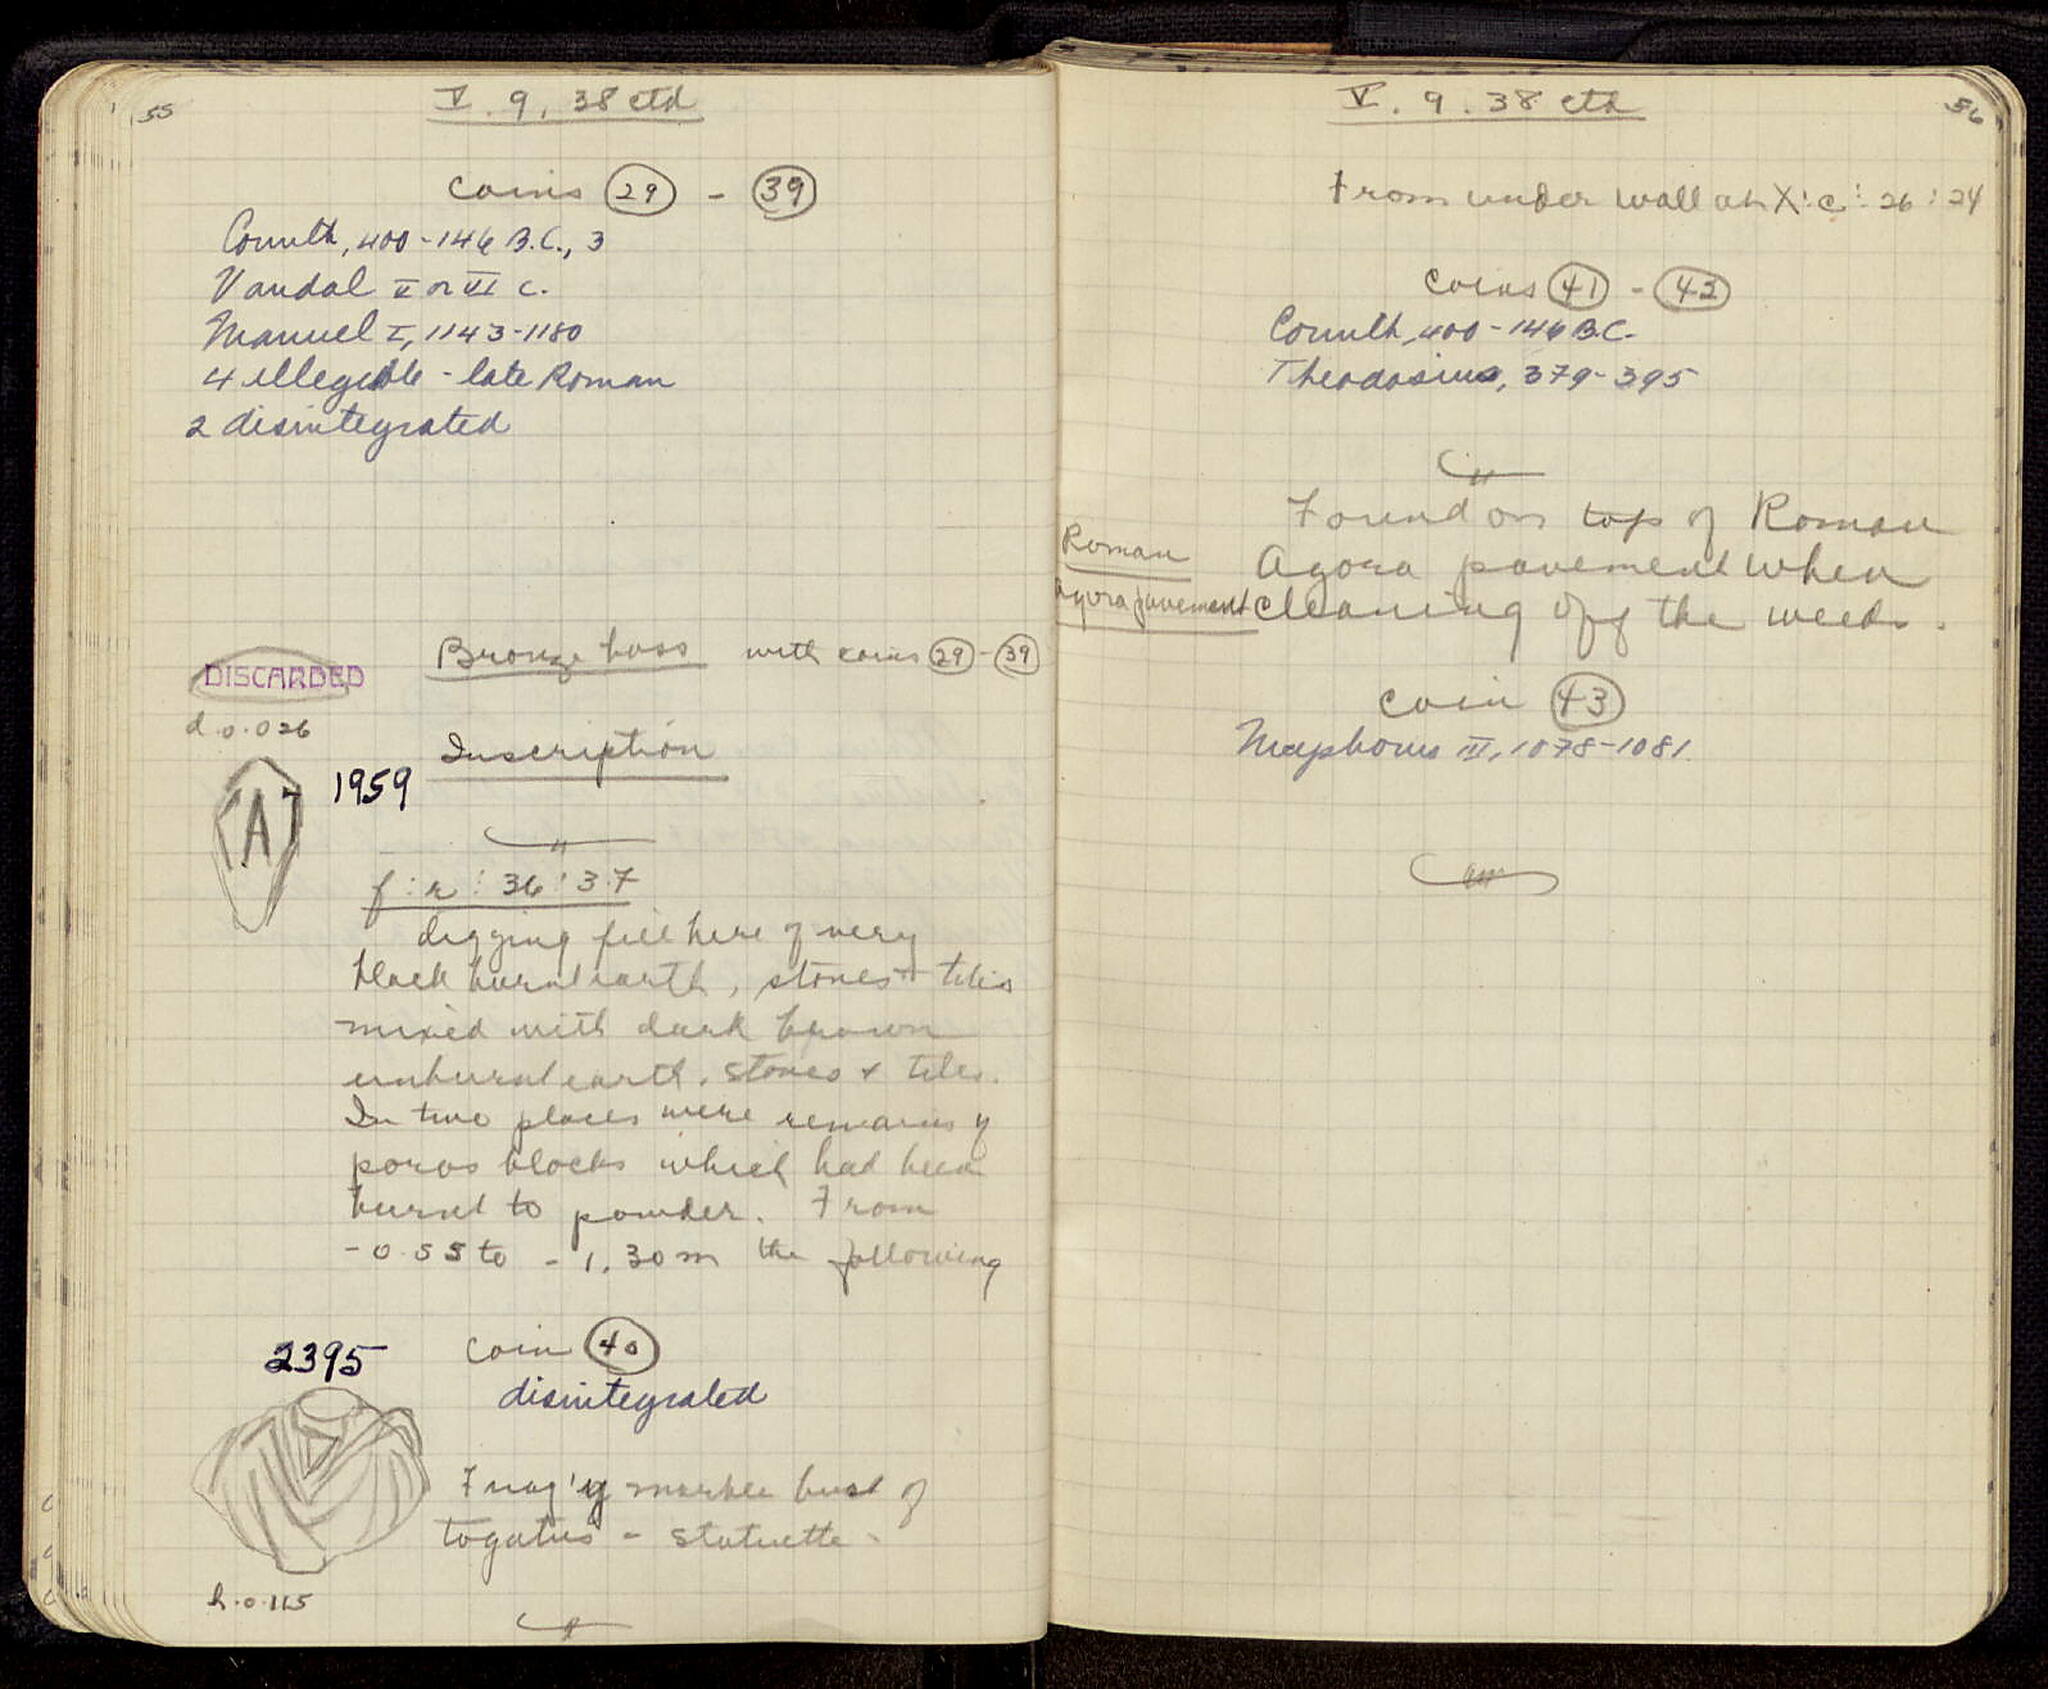 55
V. 9, 38 ctd
Coins 29 - 39
Corinth, 400-146 B.C., 3
Vandal V or VI c.
Manuel I, 1143-1180
4 illegible - late Roman
2 disintegrated
DISCARDED
Bronze boss with coins 29 - 39
d. 0.026
Inscription
1959
A
f:r:36:37
digging fill here of very
black burnt earth, stones + tiles
mixed with dark brown
unburnt earth, stones + tiles.
In two places were remains of
poros blocks which had been
burnt to powder. From
-0.55 to -1.30 m the following
2395
Coin 40
disintegrated
Frag' of marble bust of
togatus - statuette.
h. 0.115
V. 9. 38 ctd
56
From under wall at X:C:26:24
Coins 41 - 42
Corinth, 400-146 B.C.
Theodosius, 379-395
Found on top of Roman
Roman
Agora pavement when
Agora pavement
cleaning off the weeds.
Coin 43
Nicephorus III, 1078-1081.